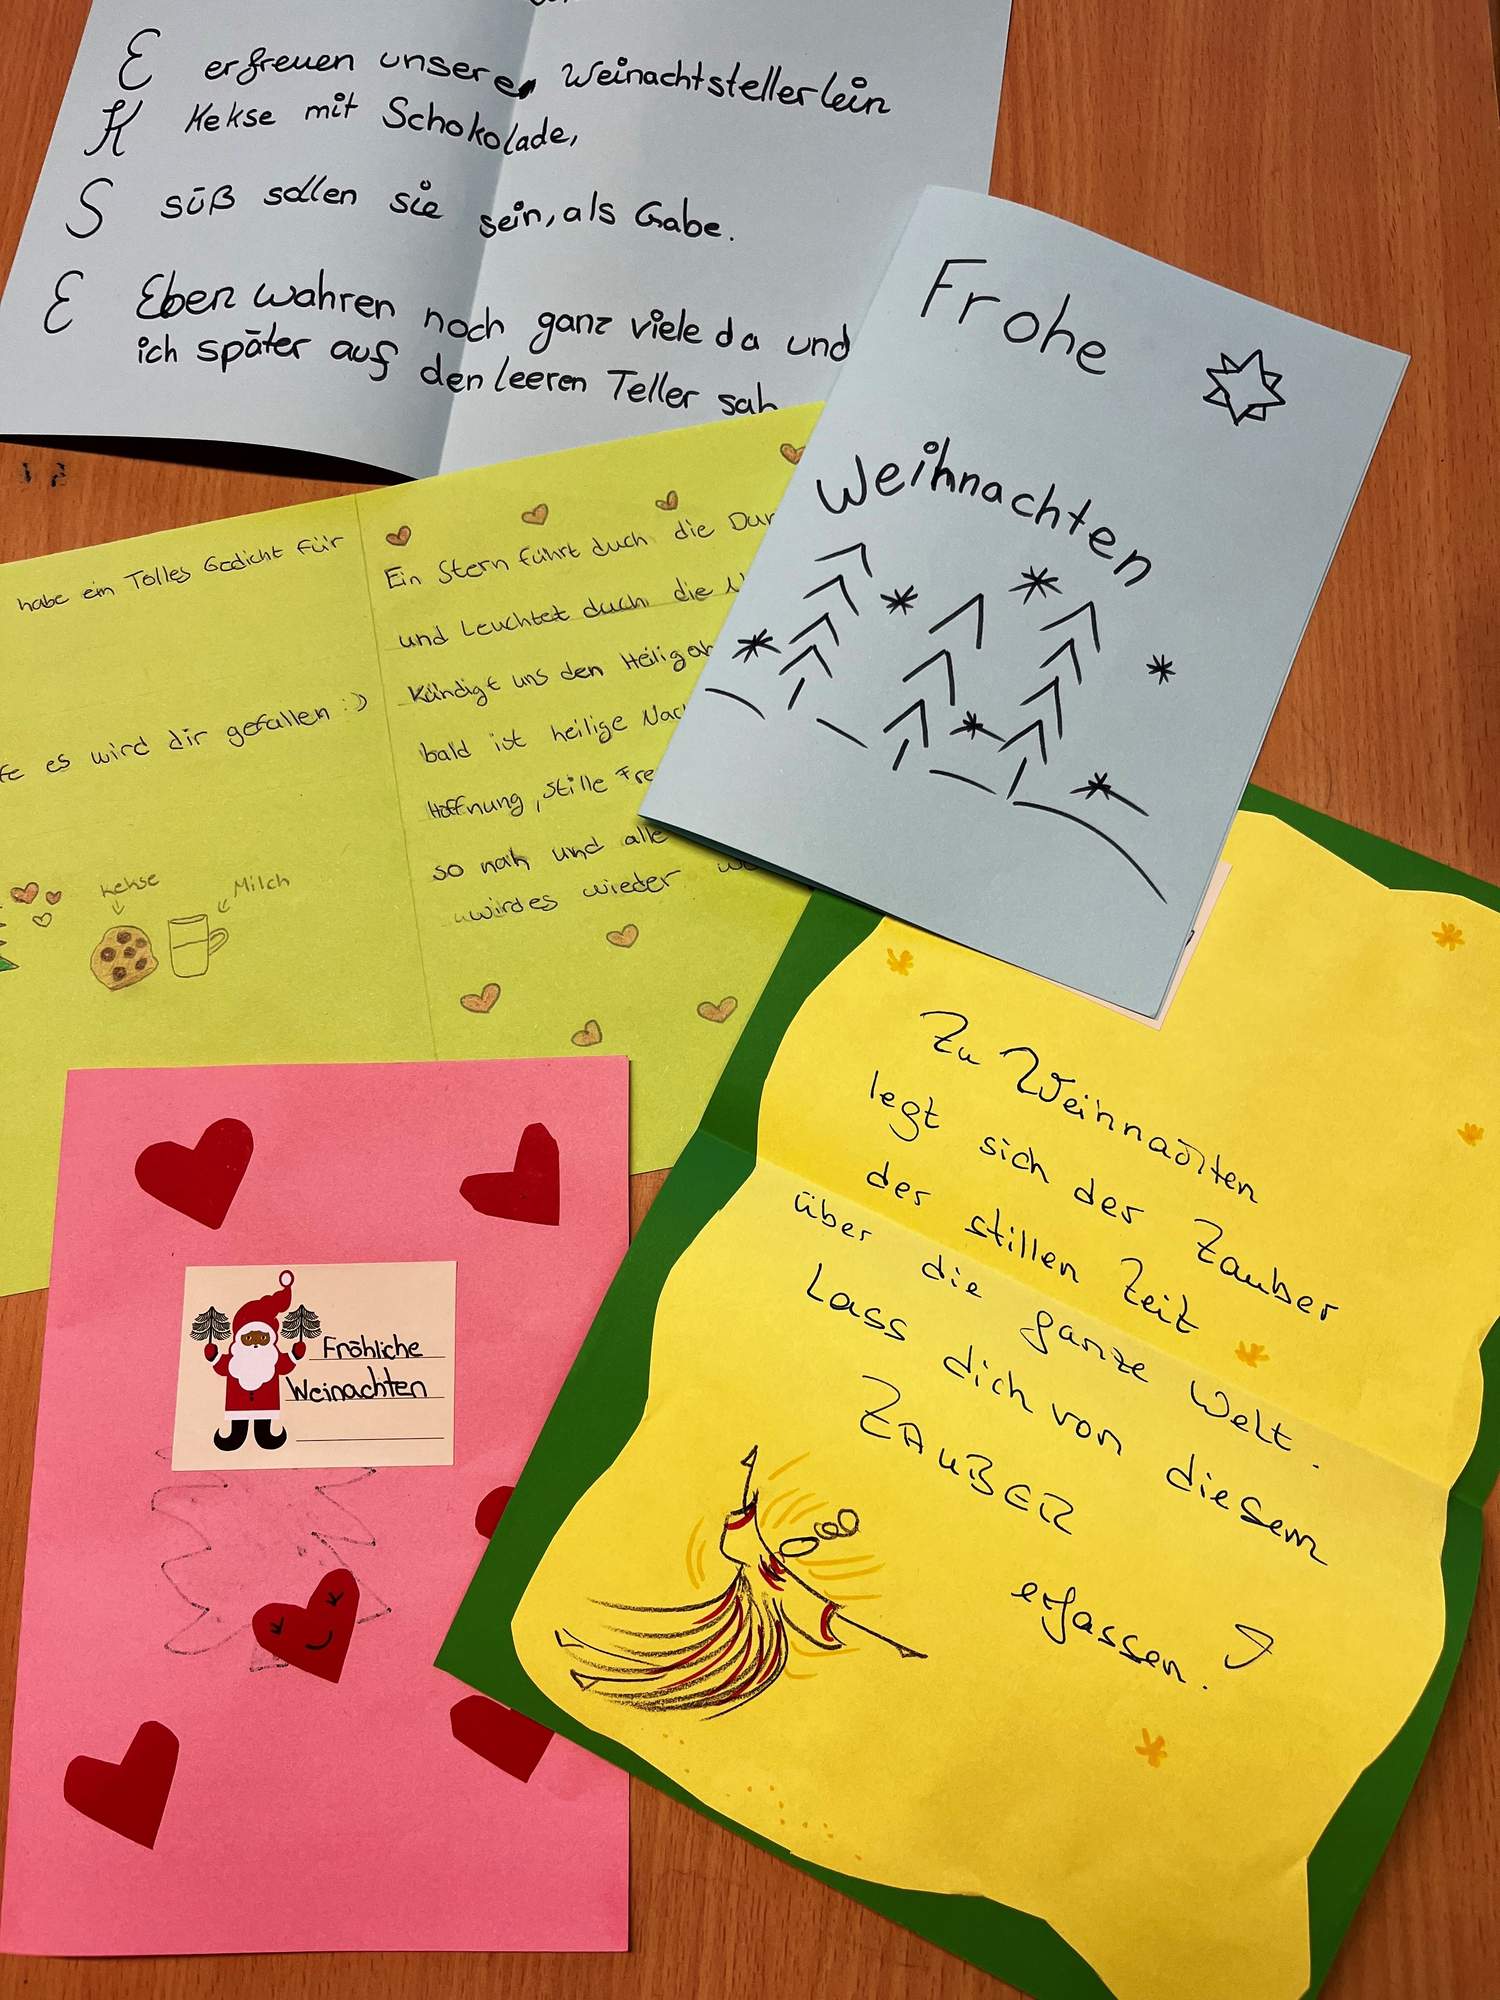 E erfreuen unsere Weinachtstellerlein
K Kekse mit Schokolade,
S süß sollen sie sein, als Gabe.
E Eben wahren noch ganz viele da und
ich später auf den leeren Teller sah
Frohe
Weihnachten
habe ein Tolles Gedicht für
es wird dir gefallen :)
Kekse
Milch
Ein Stern führt duch die
und Leuchtet duch die
Kündigt uns den
bald ist heilige
Hoffnung, stille
so nah und alle
wird es wieder
Fröhliche
Weinachten
Zu Weihnachten
legt sich der Zauber
der stillen Zeit
über die ganze Welt.
Lass dich von diesem
ZAUBER
erfassen.